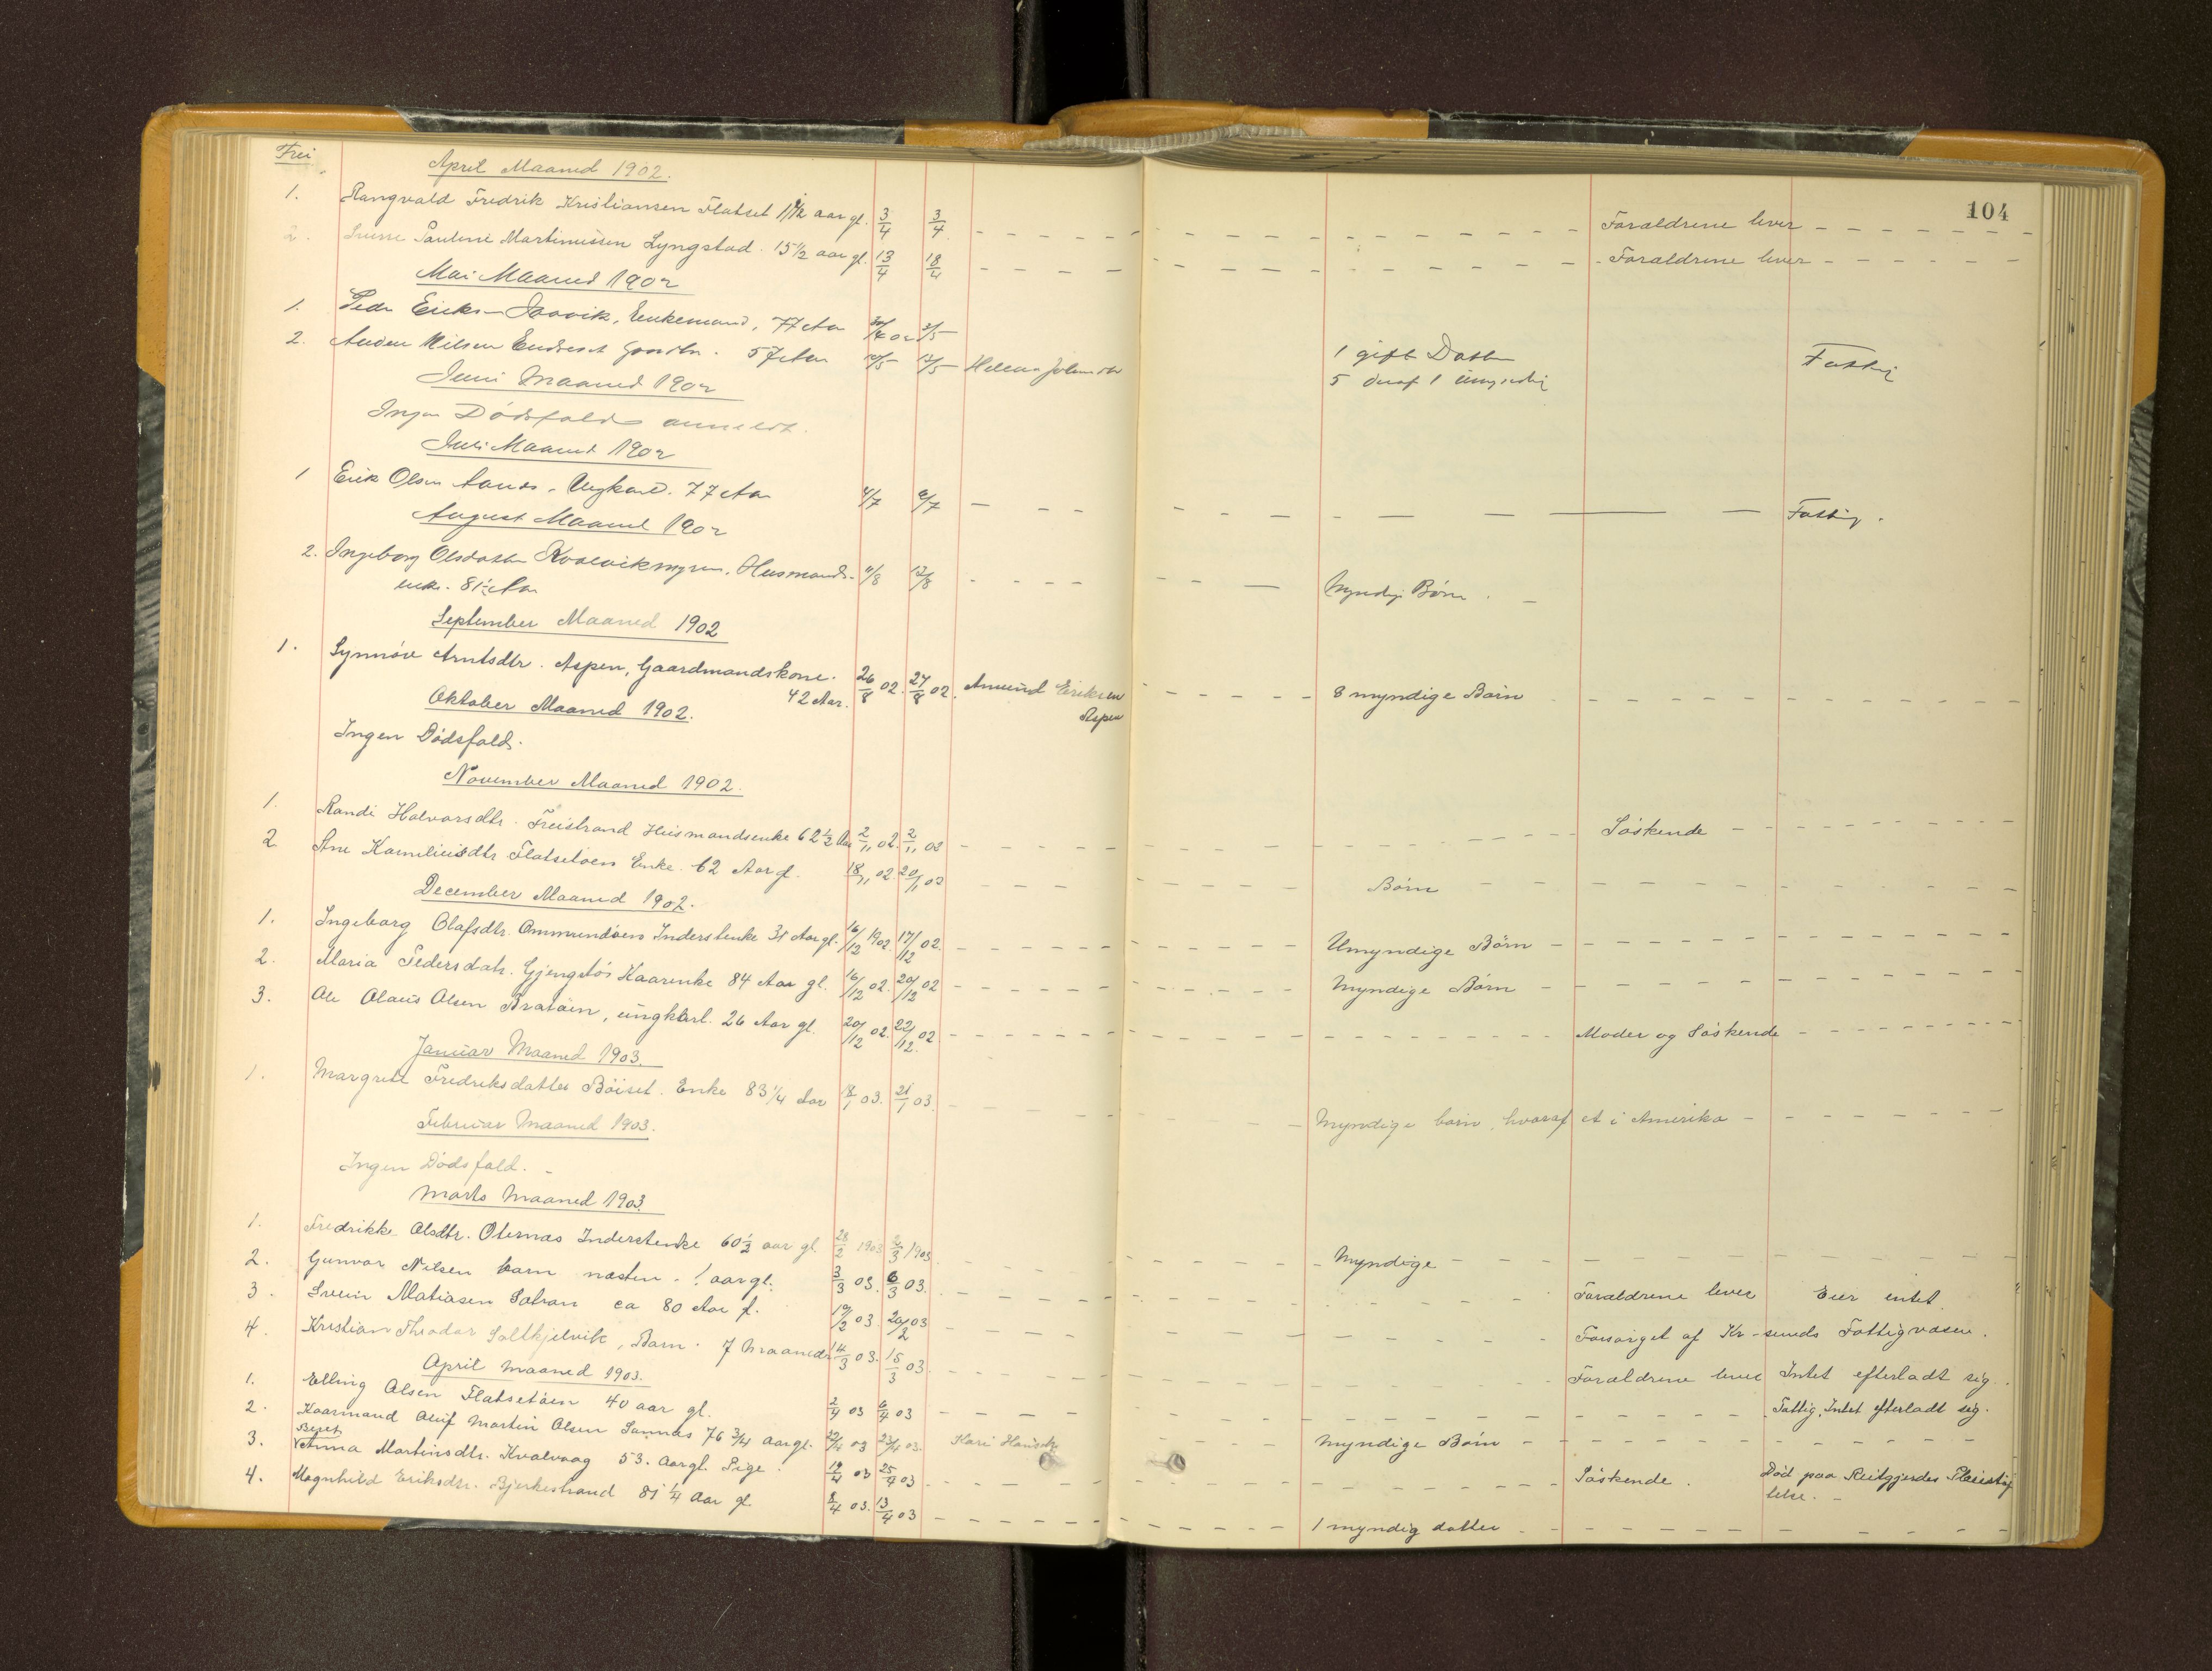 Frei
104
April Maaned 1902.
1. Rangvald Fredrik Kristiansen Flatset 1 1/2 aar gl. 3/4 3/4 Foraldrene lever
2. Pauline Martinussen Lyngstad. 15 1/2 aar gl. 13/4 18/4 Foraldrene lever
Mai Maaned 1902
1. Peder Eriks Enkemand, 77 Aar 30/4 02 1 gift Datter Fattig
2. Nilsen 57 Aar 10/5 Helena 5 deraf 1 umyndig
Juni Maaned 1902
Ingen Dödsfald anmeldt.
Juli Maaned 1902
1 Erik Olsen Ungkarl. 77 Aar Fattig.
August Maaned 1902
2. Ingeborg Olsdatter Kvalvikmyren. Husmands- 12/8 Myndige Børn.
enke. 81 1/2 Aar
September Maaned 1902
1. Synnöve Arntsdtr. Aspen, Gaardmandskone. 26/8 02. 27/8 02. Amund Eriksen 8 myndige Börn
42 Aar. Aspen
Oktober Maaned 1902.
Ingen Dödsfald.
November Maaned 1902.
1. Randi Halvorsdtr. Freistrand Husmandsenke 62 1/2 Aar 2/11 02. 2/11 02 Söskende
2 Ane Korneliusdtr Flatsetöen Enke. 62 Aar gl. 18/11 02. 20/11 02 Börn
December Maaned 1902.
1. Ingeborg Olafsdtr. Ommundöen Inderstenke 31 Aar gl. 16/12 1902 17/12 02. Umyndige Börn
2. Maria Pedersdatr. Gjengstös Kaarenke 84 Aar gl. 16/12 02. 20/12 02 Myndige Börn
3. Ole Olaus Olsen Bratöen, ungkarl. 26 Aar gl. 20/12 02. 22/12 02 Moder og Söskende
Januar Maaned 1903.
1. Margrete Fredriksdatter Böiset. Enke 83 1/4 Aar 18/1 03. 21/1 03. Myndige börn, hvoraf et i Amerika
Februar Maaned 1903.
Ingen Dödsfald.
Marts Maaned 1903.
1. Fredrikke Olsdtr. Oternes Inderstenke 60 1/2 aar gl. 28/2 1903 2/3 1903 Myndige
2. Gunvor Nilsen barn næsten 1 aar gl. 3/3 03. 6/3 03. Foraldrene lever Eier intet.
3. Matiasen ca 80 Aar g. 19/2 03. 20/2 03 Forsörget af Kr-sunds Fattigvæsen.
4. Kristian Theodor Saltkjelvik, Barn. 7 Maaneder 14/3 03. 15/3 03. Foraldrene lever Intet efterladt sig.
April Maaned 1903.
1. Elling Olsen Flatsetöen 40 aar gl. 2/4 03 6/4 03 Fattig, Intet efterladt sig.
2. Kaarmand Oluf Martin Olsen Sannas 76 3/4 aar gl. 22/4 03 23/4 03. Kari Hansdr. Myndige Börn
3. Beret Anna Martinsdtr. Kvalvaag 53. Aargl. Pige. 19/4 03 25/4 03 Söskende. Död paa Reitgjerdes Pleiestif
telse.
4. Magnhild Eriksdtr. Bjerkestrand 81 1/4 Aar gl 8/4 03. 13/4 03 1 myndig datter